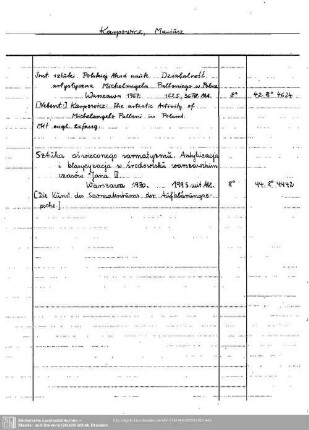 Karpowicz, Mariusz
Inst. sztuki. Polskiej Akad. nauk. Działalność
artystyczna Michelangela Palloniego w Polsce
Warszawa 1967. 162 S. 8° 42. 8° 4624
[Nebent.:] Karpowicz: The artistic Activity of
Michelangelo Palloni in Poland.
Mit engl. Zsfassg.
Sztuka oświeconego sarmatyzmu. Antykizacja
i klasycyzacja w środowisku warszawskim
czasów Jana III.
Warszawa 1970. mit Abb. 8° 44. 8° 4442
[Die Kunst des Sarmatentums der Aufklärungs-
epoche.]